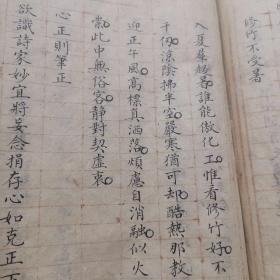 修竹不受暑
入夏羣紛暑誰能傲化工惟看修竹好不
千仞濃陰拂半空嚴寒猶可却酷熱那教
迎正午風高標真洒落煩慮自消融似火
嵩此中無俗客静對契虚衷
心正則筆正
欲識詩家妙宜將妄念捐存心如克正下